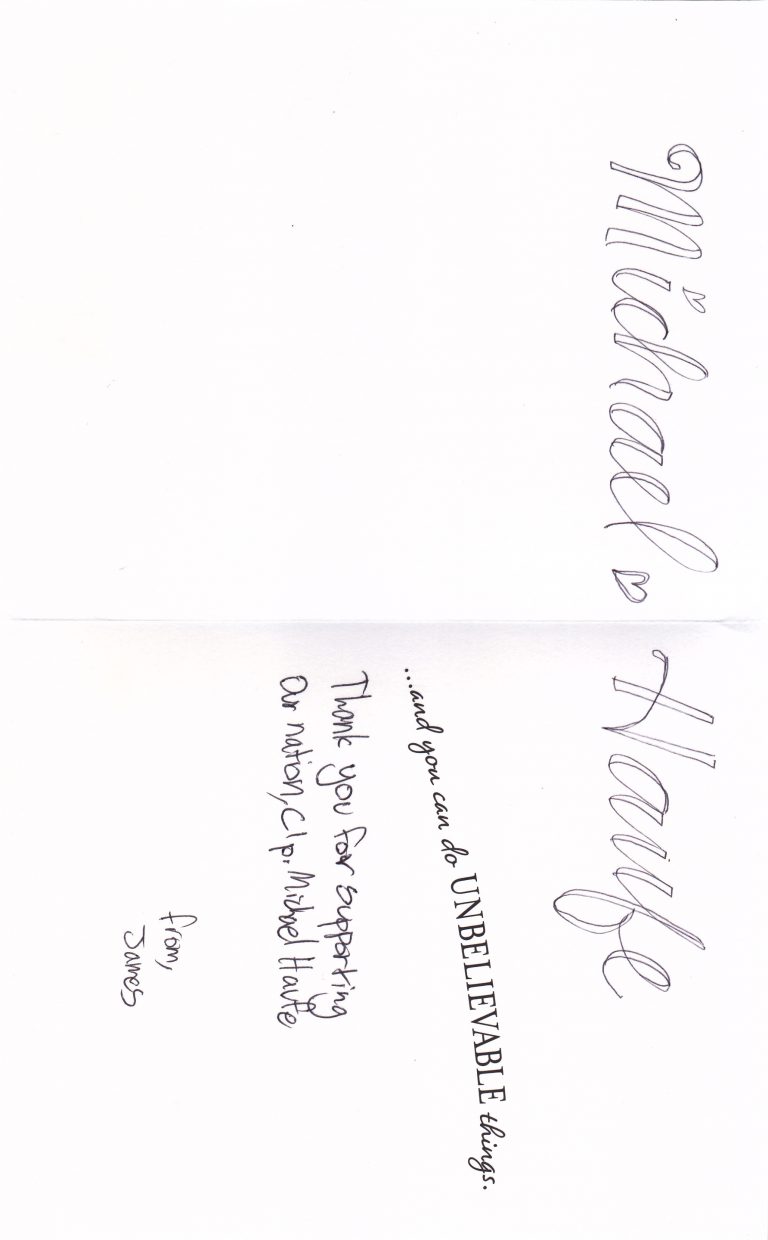 Michael Haufe
...and you can do UNBELIEVABLE things.
Thank you for supporting
Our nation, Clp. Michael Haufe
from,
James